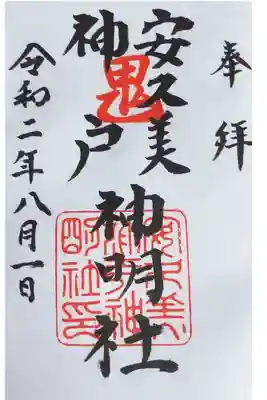 奉拝
安久美
神戸
神明社
鬼
安久美神明社印
令和二年八月一日